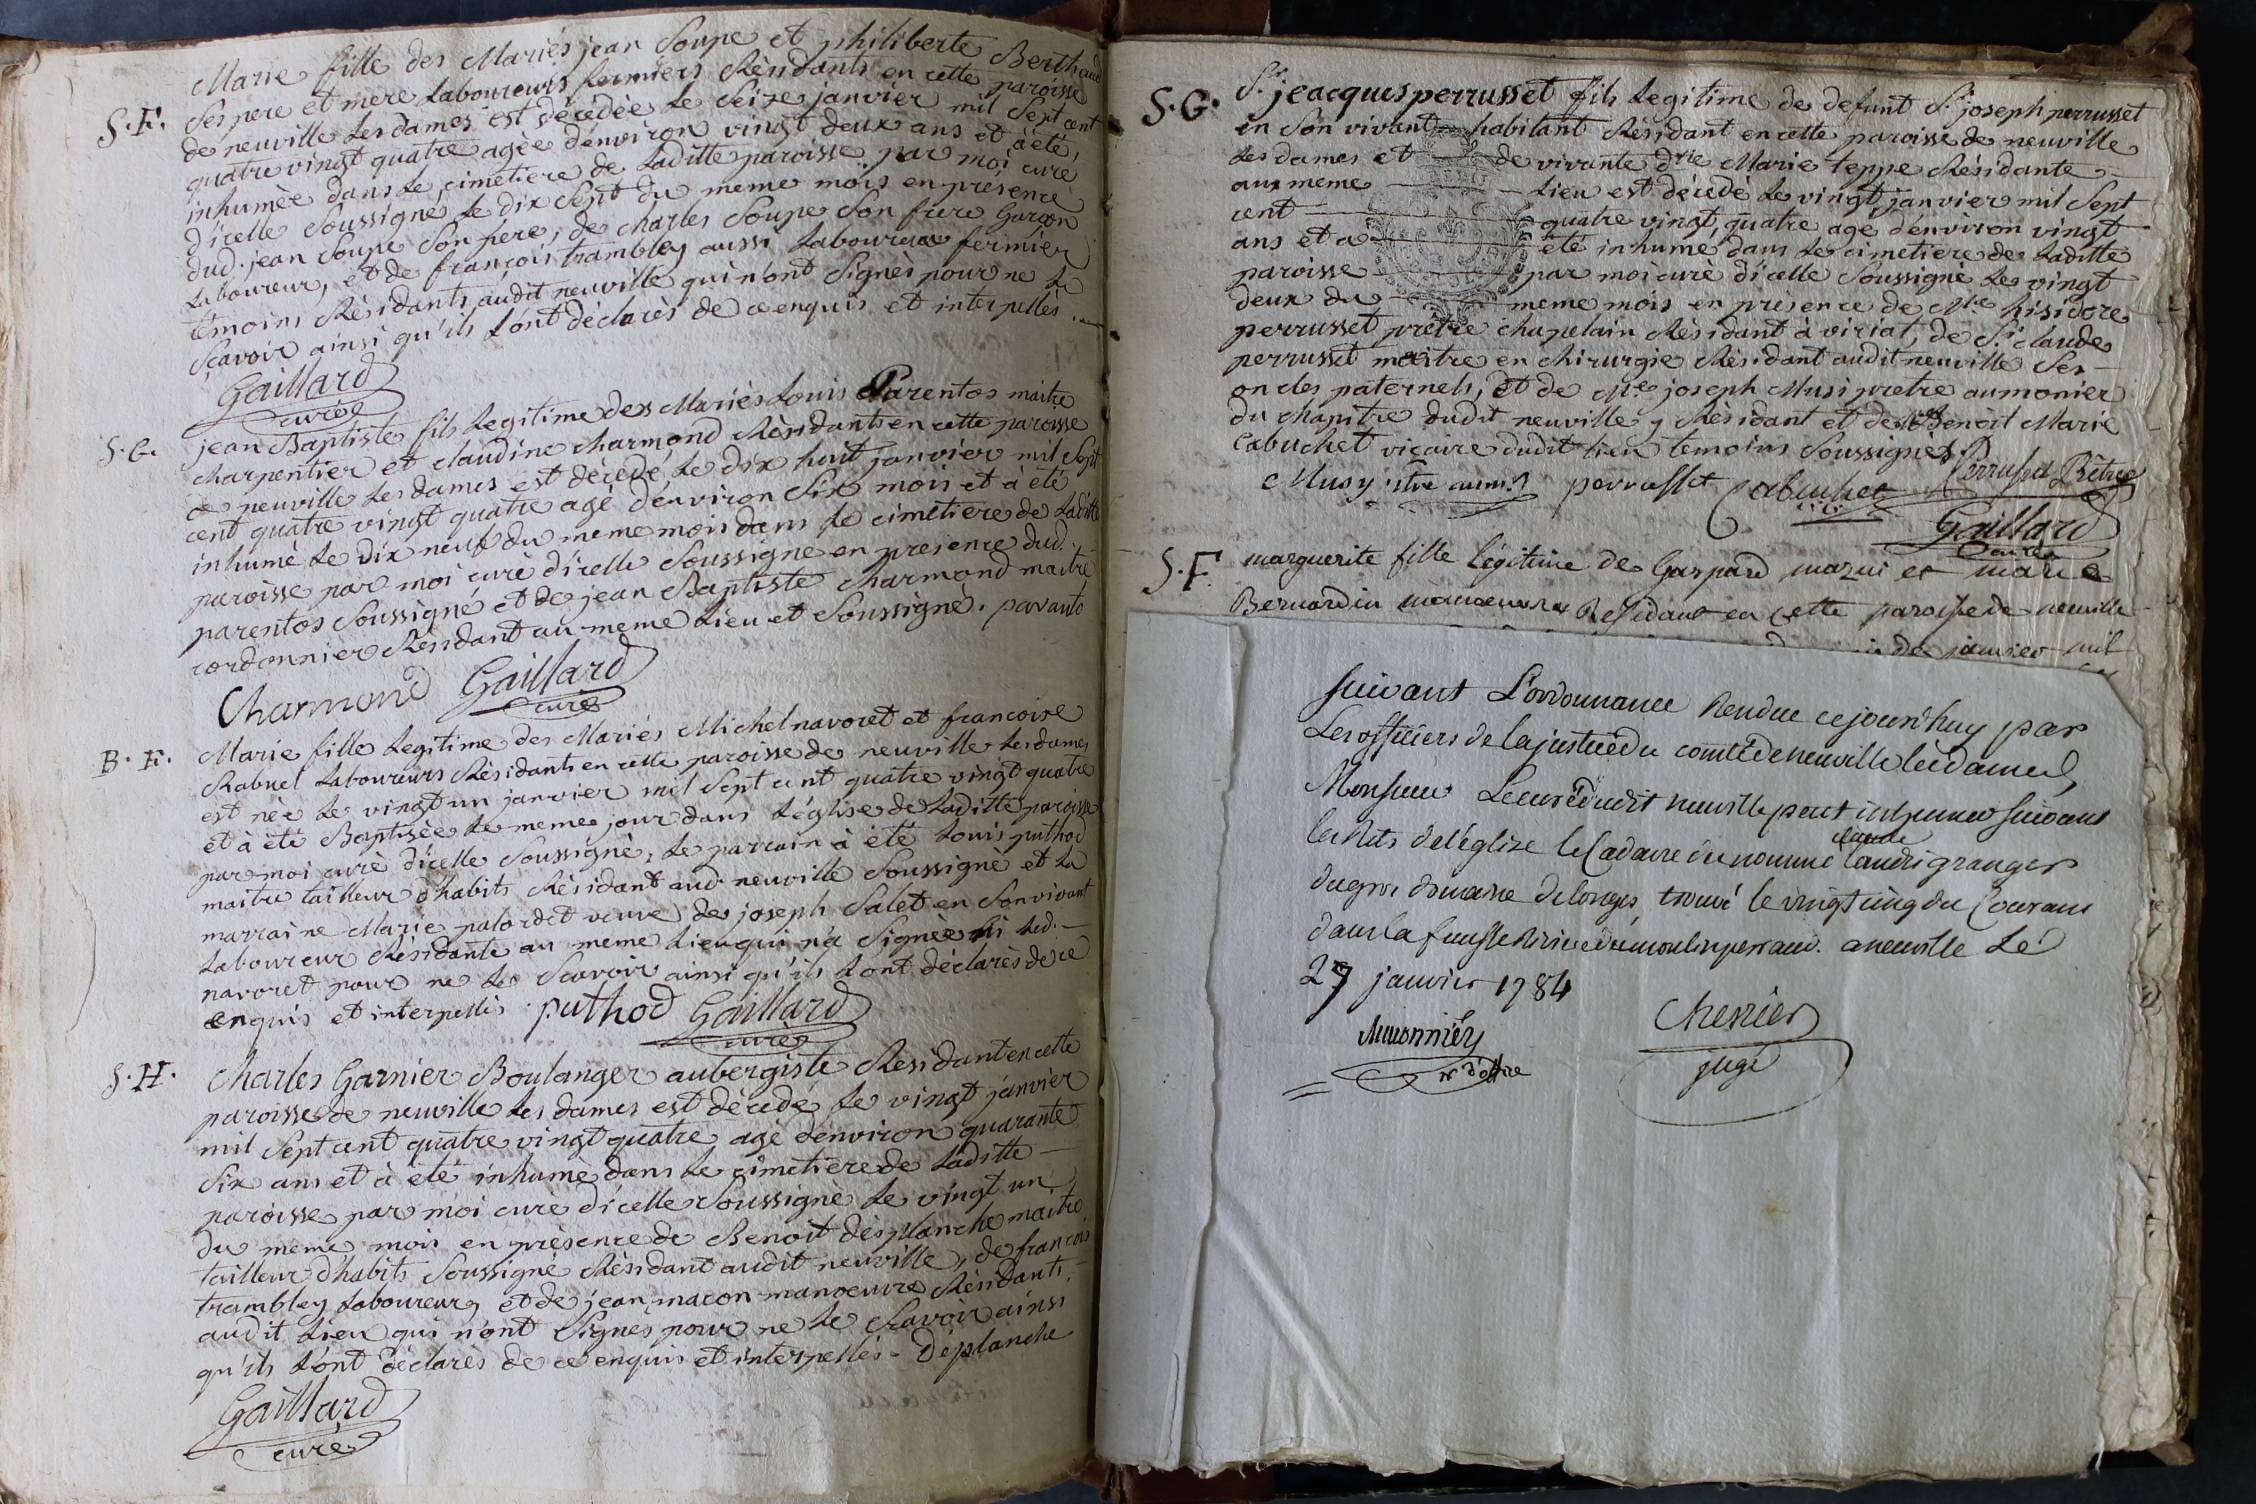 Marie fille des Mariés jean Soupe et philiberte Berthaud
S. F. Ses pere et mere Laboureurs fermiers Rèsidants en cette paroisse
de neuville Les dames est dècèdèe Le Seize janvier mil Sept cent
quatre vingt quatre agèe dènviron vingt deux ans et à ètè,
inhumèe dans Le cimetiere de Laditte paroisse par moi curè
d'icelle Soussignè Le dix Sept du meme mois en prèsence
dud. jean Soupe Son père, de charles Soupe Son frere Garçon
Laboureur, et de françois trambley aussi Laboureur fermier
tèmoins Rèsidants audit neuville qui n'ont Signès pour ne Le
Sçavoir ainsi qu'ils L'ont dèclarès de ce enquis et interpellès.
Gaillard
curè
S. G. jean Baptiste fils Legitime des Mariès Louis Parentos maitre
charpentier et claudine charmond Rèsidants en cette paroisse
de neuville Les dames est dècèdè, Le dix huit janvier mil Sept
cent quatre vingt quatre agè dènviron Six mois et à ètè
inhumè Le dix neuf du meme mois dans Le cimètiere de Laditte
paroisse par moi curè d'icelle Soussignè en presence dud.
parentos Soussignè et de jean Baptiste charmond maitre
cordonnier Rèsidant au meme Lieu et Soussignè. paranto
Charmond Gaillard
curè
B. F. Marie fille Legitime des Mariès Michel navoret et francoise
Rabuel Laboureurs Rèsidants en cette paroisse de neuville Les dames
est nèe Le vingt un janvier mil Sept cent quatre vingt quatre
et à ètè Baptisèe Le meme jour dans L'èglise de Laditte paroisse
par moi curè d'icelle Soussignè, Le parrain à ètè Louis puthod
maitre tailleur d'habits Rèsidant aud. neuville Soussignè et La
marraine Marie palordet veuve de joseph Salet en Son vivant
Laboureur Rèsidante au meme Lieu qui n'a Signèe ni Led.
navoret pour ne Le Scavoir ainsi qu'ils L'ont dèclarès de ce
enquis et interpellès. puthod Gaillard
curè
S. H. Charles Garnier Boulanger aubergiste Rèsidant en cette
paroisse de neuville Les dames est dècèdè Le vingt janvier
mil Sept cent quatre vingt quatre agè dènviron quarante
Six ans et à ètè inhumè dans Le cimetiere de Laditte
paroisse par moi curè d'icelle Soussignè Le vingt un
du meme mois en prèsence de Benoit desplanche maitre
tailleur d'habits Soussignè Rèsidant audit neuville, de francois
trambley Laboureur, et de jean macon manoeuvre Rèsidants
audit Lieu qui n'ont Signès pour ne Le Scavoir ainsi
qu'ils L'ont dèclarès de ce enquis et interpellès. Déplanche
Gaillard
curè
S. G. Sr. jeacques perrusset fils Legitime de defunt Sr. joseph perrusset
en Son vivant habitant Rèsidant en cette paroisse de neuville
Les dames et de vivante dlle Marie teppe Rèsidante
aux meme Lieu est dècèdè Le vingt janvier mil Sept
cent quatre vingt, quatre agè d'environ vingt
ans et a ètè inhumè dans Le cimetiere de Laditte
paroisse par moi curè d'icelle Soussignè Le vingt
deux du meme mois en presence de Mre hisidore
perrusset prètre chapelain Rèsidant à viriat, de Sr. claude
perrusset maitre en chirurgie Rèsidant audit neuville Ses
oncles paternels, et de Mre joseph Musi pretre aumonier
du chapitre dudit neuville y Rèsidant et de Mre Benoit Marie
Cabuchet vicaire dudit lieu temoins Soussignès Perrusset Prêtre
Musy perrusset Cabuchet
Gaillard
curè
S. F. marguerite fille légitime de Gaspard mazui et marie
Bernardin manoeuvres Residant en cette paroisse de neuville
de janvier mil
Suivant L'ordonnance Rendue cejourd'huy par
Les officiers de la justice du comté de neuville les dames,
Monsieur Le curé dudit neuville peut inhumer Suivant
les Rits de l'églize le Cadavre du nommé claude landri granger
du gros domaine de longes, trouvé le vingt cinq du Courant
dans la fausse Riviere du moulin perraud. a neuville Le
27 janvier 1784
Chenier
juge